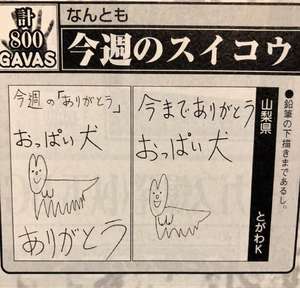 計
800
GAVAS
なんとも
今週のスイコウ
今週の「ありがとう」
おっぱい犬
ありがとう
今までありがとう
おっぱい犬
山梨県
とがわK
●鉛筆の下描きまであるし。